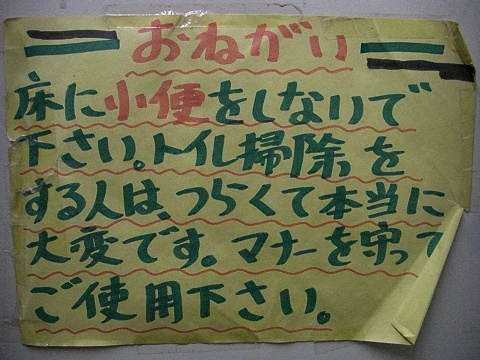 おねがい
床に小便をしないで
下さい。トイレ掃除を
する人は、つらくて本当に
大変です。マナーを守って
ご使用下さい。